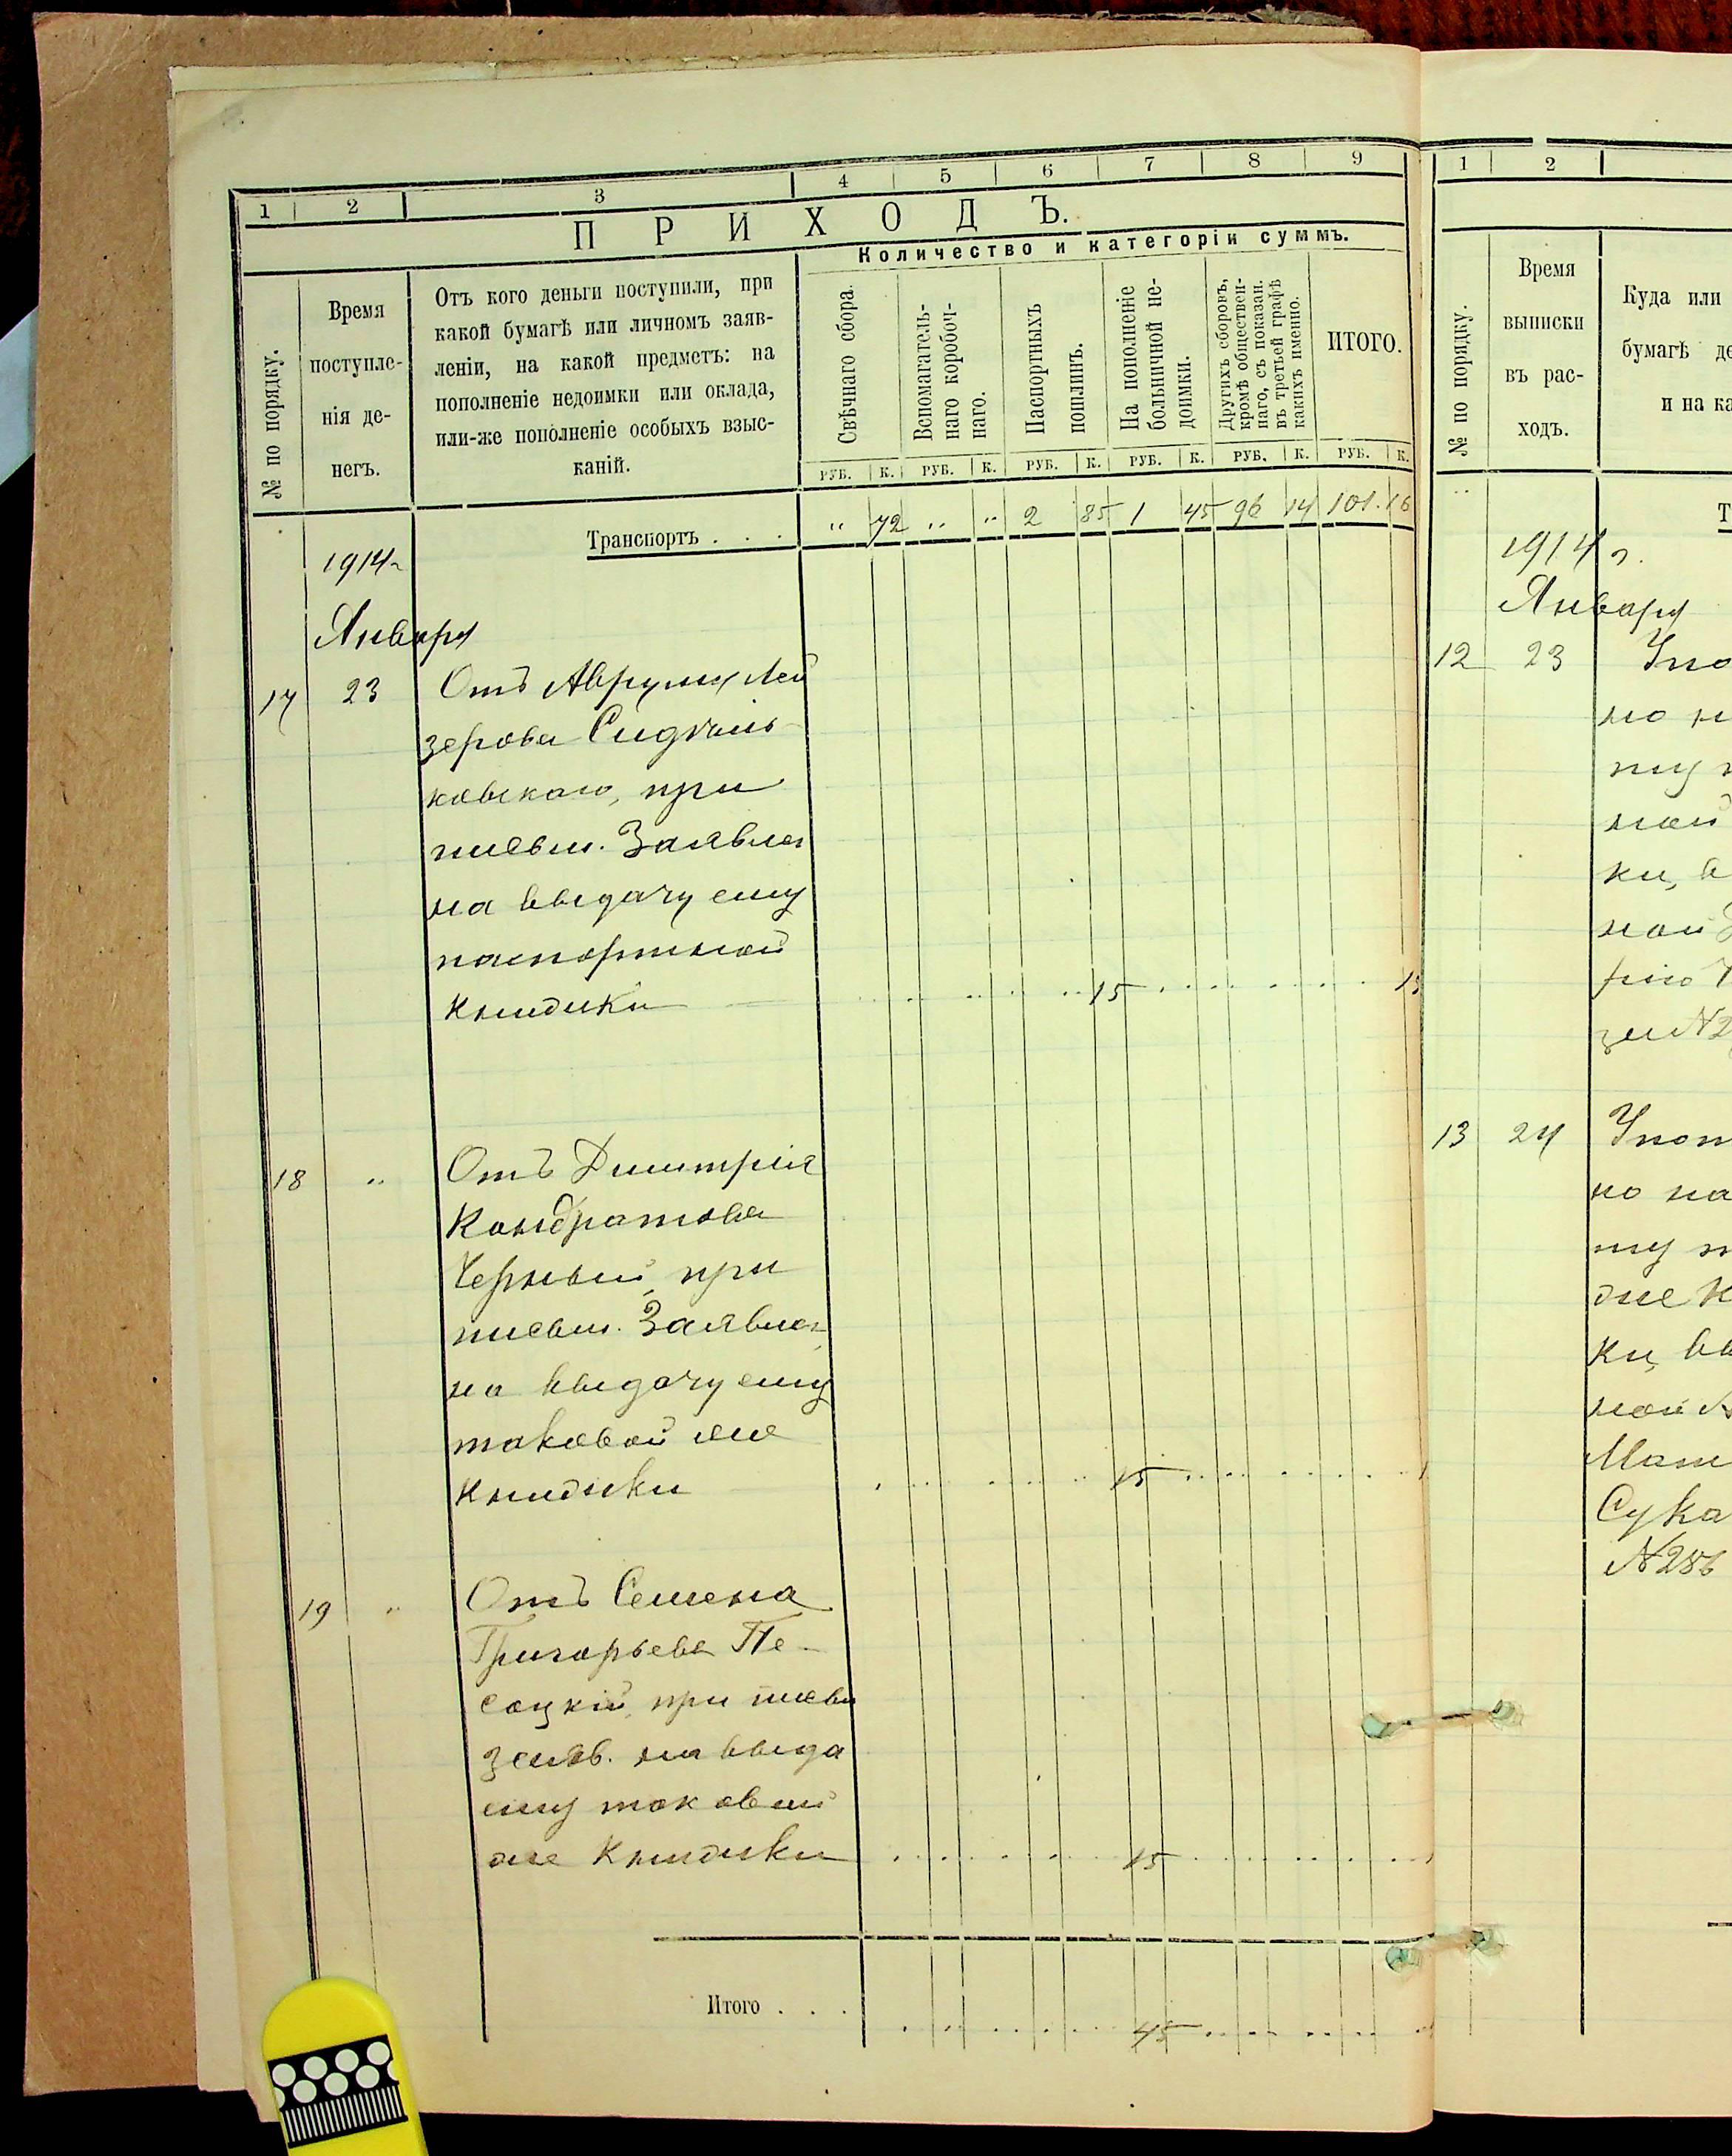 1 2 3 4 5 6 7 8 9
ПРИХОДЪ.
Количество и категоріи суммъ.
№ по порядку.
Время
поступле-
нія де-
негъ.
Отъ кого деньги поступили, при
какой бумагѣ или личномъ заяв-
леніи, на какой предметъ: на
пополненіе недоимки или оклада,
или-же пополненіе особыхъ взыс-
каній.
Свѣчнаго сбора.
Вспомагатель-
наго коробоч-
наго.
Паспортныхъ
пошлинъ.
На пополненіе
больничной не-
доимки.
Другихъ сборовъ,
кромѣ обществен-
наго, съ показан.
въ третьей графѣ
какихъ именно.
ИТОГО.
РУБ. К. РУБ. К. РУБ. К. РУБ. К. РУБ. К. РУБ. К.
Транспортъ . . . " 72 " " 2 85 1 45 96 14 101.16
1914 г
Января
17 23 Отъ Аврума Лей
зерова
ковскаго, при
письм. Заявлен
на выдачу ему
паспортной
книжки 15 15
18 " Отъ Димитрія
Кондратова
Черный, при
письм. Заявлен
на выдачу ему
таковой же
книжки 15
19 " Отъ Семена
Григорьева Пе-
соцкій, при письм
заяв. на выда
ему таковой
же книжки 15
Итого . . . 45
1 2
№ по порядку.
Время
выписки
въ рас-
ходъ.
Куда или
бумагѣ де
и на ка
Т
1914 г.
Января
12 23 Упо
но н
ту п
ной
ки, в
ной
рію
13 24 Упот
но на
ту п
же к
ки, вы
ной
Мат
Сука
№286